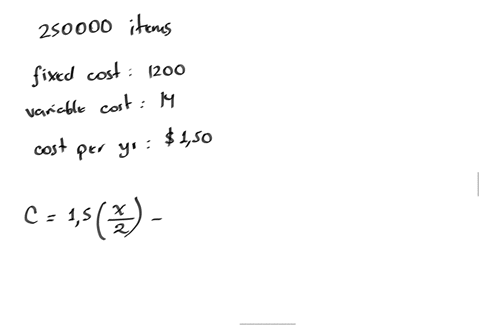 250000 items
fixed cost : 1200
variable cost : 14
cost per yr : $1,50
C = 1,5 (x/2) -